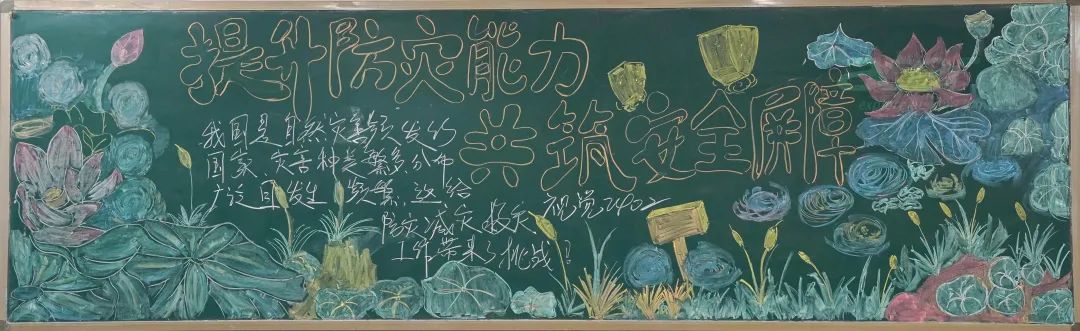 提升防灾能力
共筑安全屏障
我国是自然灾害频发的
国家、灾害种类繁多、分布
广泛且发生频繁、这给
防灾减灾救灾
工作带来了挑战!
视觉2402